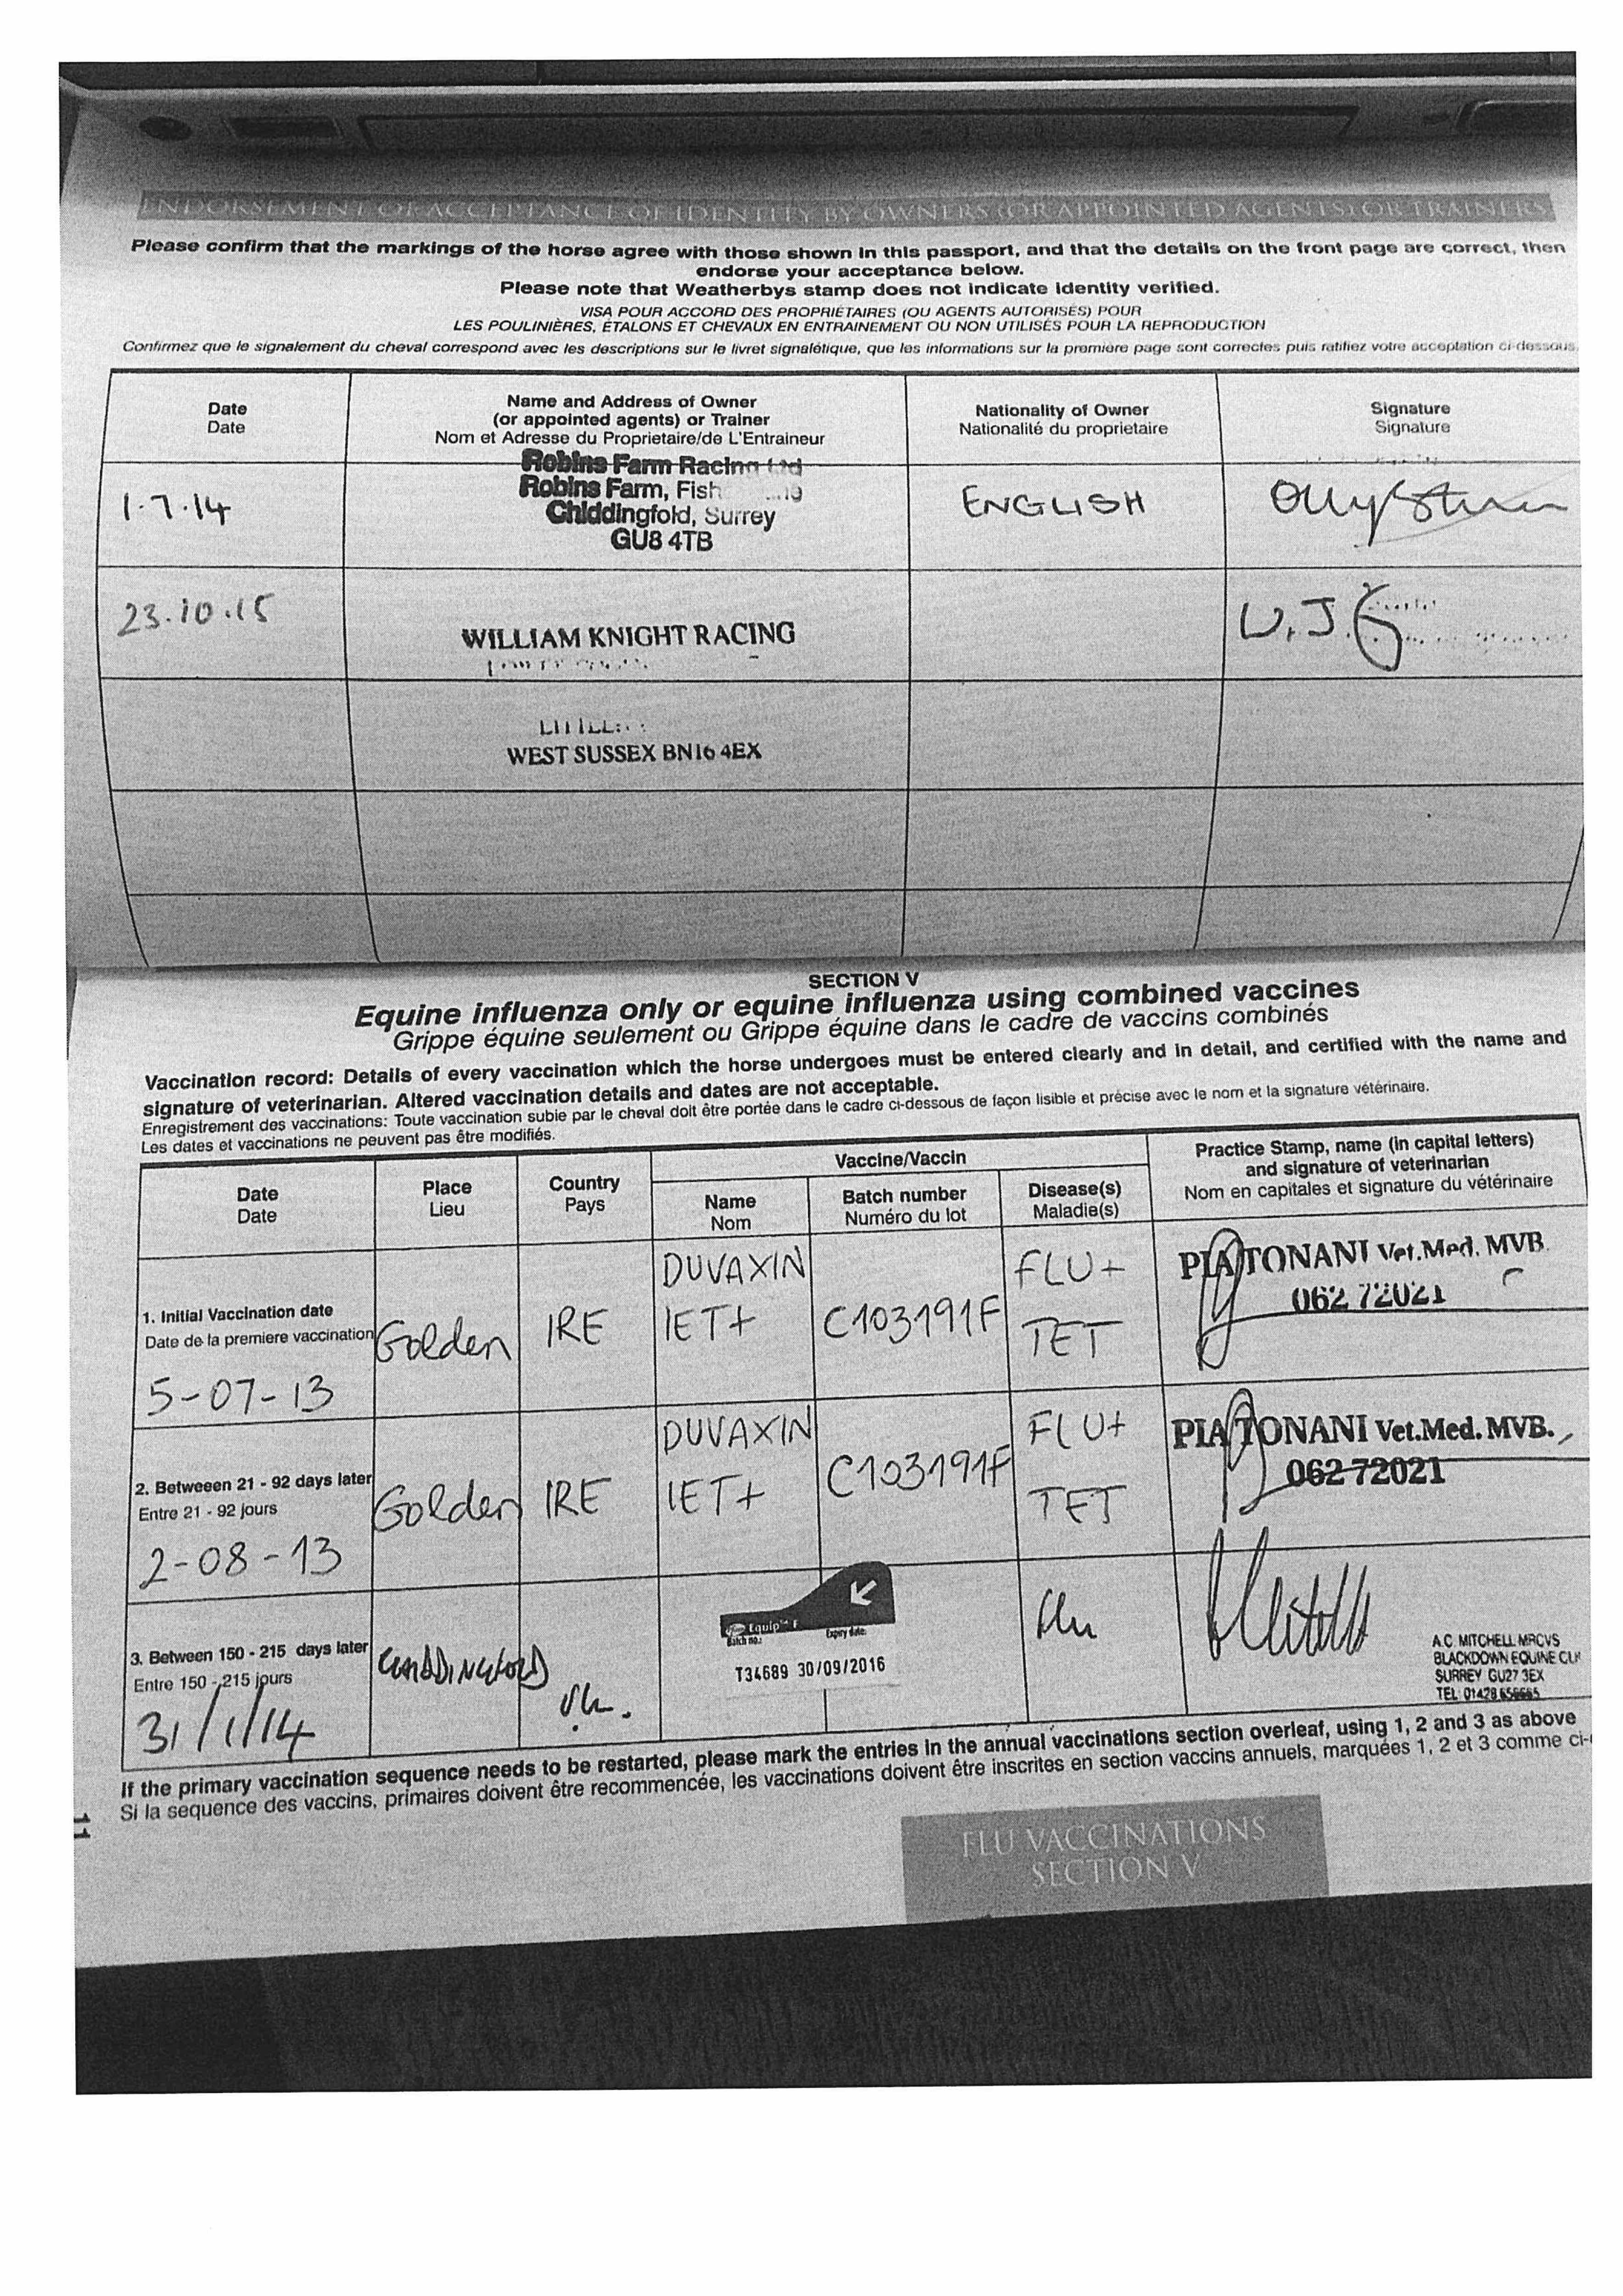 ENDORSEMENT OF ACCEPTANCE OF IDENTITY BY OWNERS (OR APPOINTED AGENTS) OR TRAINERS
Please confirm that the markings of the horse agree with those shown in this passport, and that the details on the front page are correct, then
endorse your acceptance below.
Please note that Weatherbys stamp does not indicate identity verified.
VISA POUR ACCORD DES PROPRIÉTAIRES (OU AGENTS AUTORISÉS) POUR
LES POULINIÈRES, ÉTALONS ET CHEVAUX EN ENTRAINEMENT OU NON UTILISÉS POUR LA REPRODUCTION
Confirmez que le signalement du cheval correspond avec les descriptions sur le livret signalétique, que les informations sur la premiere page sont correctes puis ratifiez votre acceptation ci-dessous.
Date
Date
Name and Address of Owner
(or appointed agents) or Trainer
Nom et Adresse du Proprietaire/de L'Entraineur
Nationality of Owner
Nationalité du proprietaire
Signature
Signature
1.7.14
Robins Farm Racing Ltd
Robins Farm, Fish
Chiddingfold, Surrey
GU8 4TB
ENGLISH
23.10.15
WILLIAM KNIGHT RACING
WEST SUSSEX BN16 4EX
SECTION V
Equine influenza only or equine influenza using combined vaccines
Grippe équine seulement ou Grippe équine dans le cadre de vaccins combinés
Vaccination record: Details of every vaccination which the horse undergoes must be entered clearly and in detail, and certified with the name and
signature of veterinarian. Altered vaccination details and dates are not acceptable.
Enregistrement des vaccinations: Toute vaccination subie par le cheval doit être portée dans le cadre ci-dessous de façon lisible et précise avec le nom et la signature vétérinaire.
Les dates et vaccinations ne peuvent pas être modifiés.
Date
Date
Place
Lieu
Country
Pays
Vaccine/Vaccin
Name
Nom
Batch number
Numéro du lot
Disease(s)
Maladie(s)
Practice Stamp, name (in capital letters)
and signature of veterinarian
Nom en capitales et signature du vétérinaire
1. Initial Vaccination date
Date de la premiere vaccination
5-07-13
Golden
IRE
DUVAXIN
IET+
C103191F
FLU+
TET
PIA TONANI Vet.Med. MVB.
062 72021
2. Betweeen 21 - 92 days later
Entre 21 - 92 jours
2-08-13
Golden
IRE
DUVAXIN
IET+
C103191F
FLU+
TET
PIA TONANI Vet.Med. MVB.
062 72021
3. Between 150 - 215 days later
Entre 150 - 215 jours
31/1/14
CHIDDINGFOLD
Uk.
Equip F
Batch no.:
Expiry date:
T34689 30/09/2016
flu
A.C. MITCHELL MRCVS
BLACKDOWN EQUINE CLI
SURREY GU27 3EX
TEL 01428
If the primary vaccination sequence needs to be restarted, please mark the entries in the annual vaccinations section overleaf, using 1, 2 and 3 as above
Si la sequence des vaccins, primaires doivent être recommencée, les vaccinations doivent être inscrites en section vaccins annuels, marquées 1, 2 et 3 comme ci-
11
FLU VACCINATIONS
SECTION V